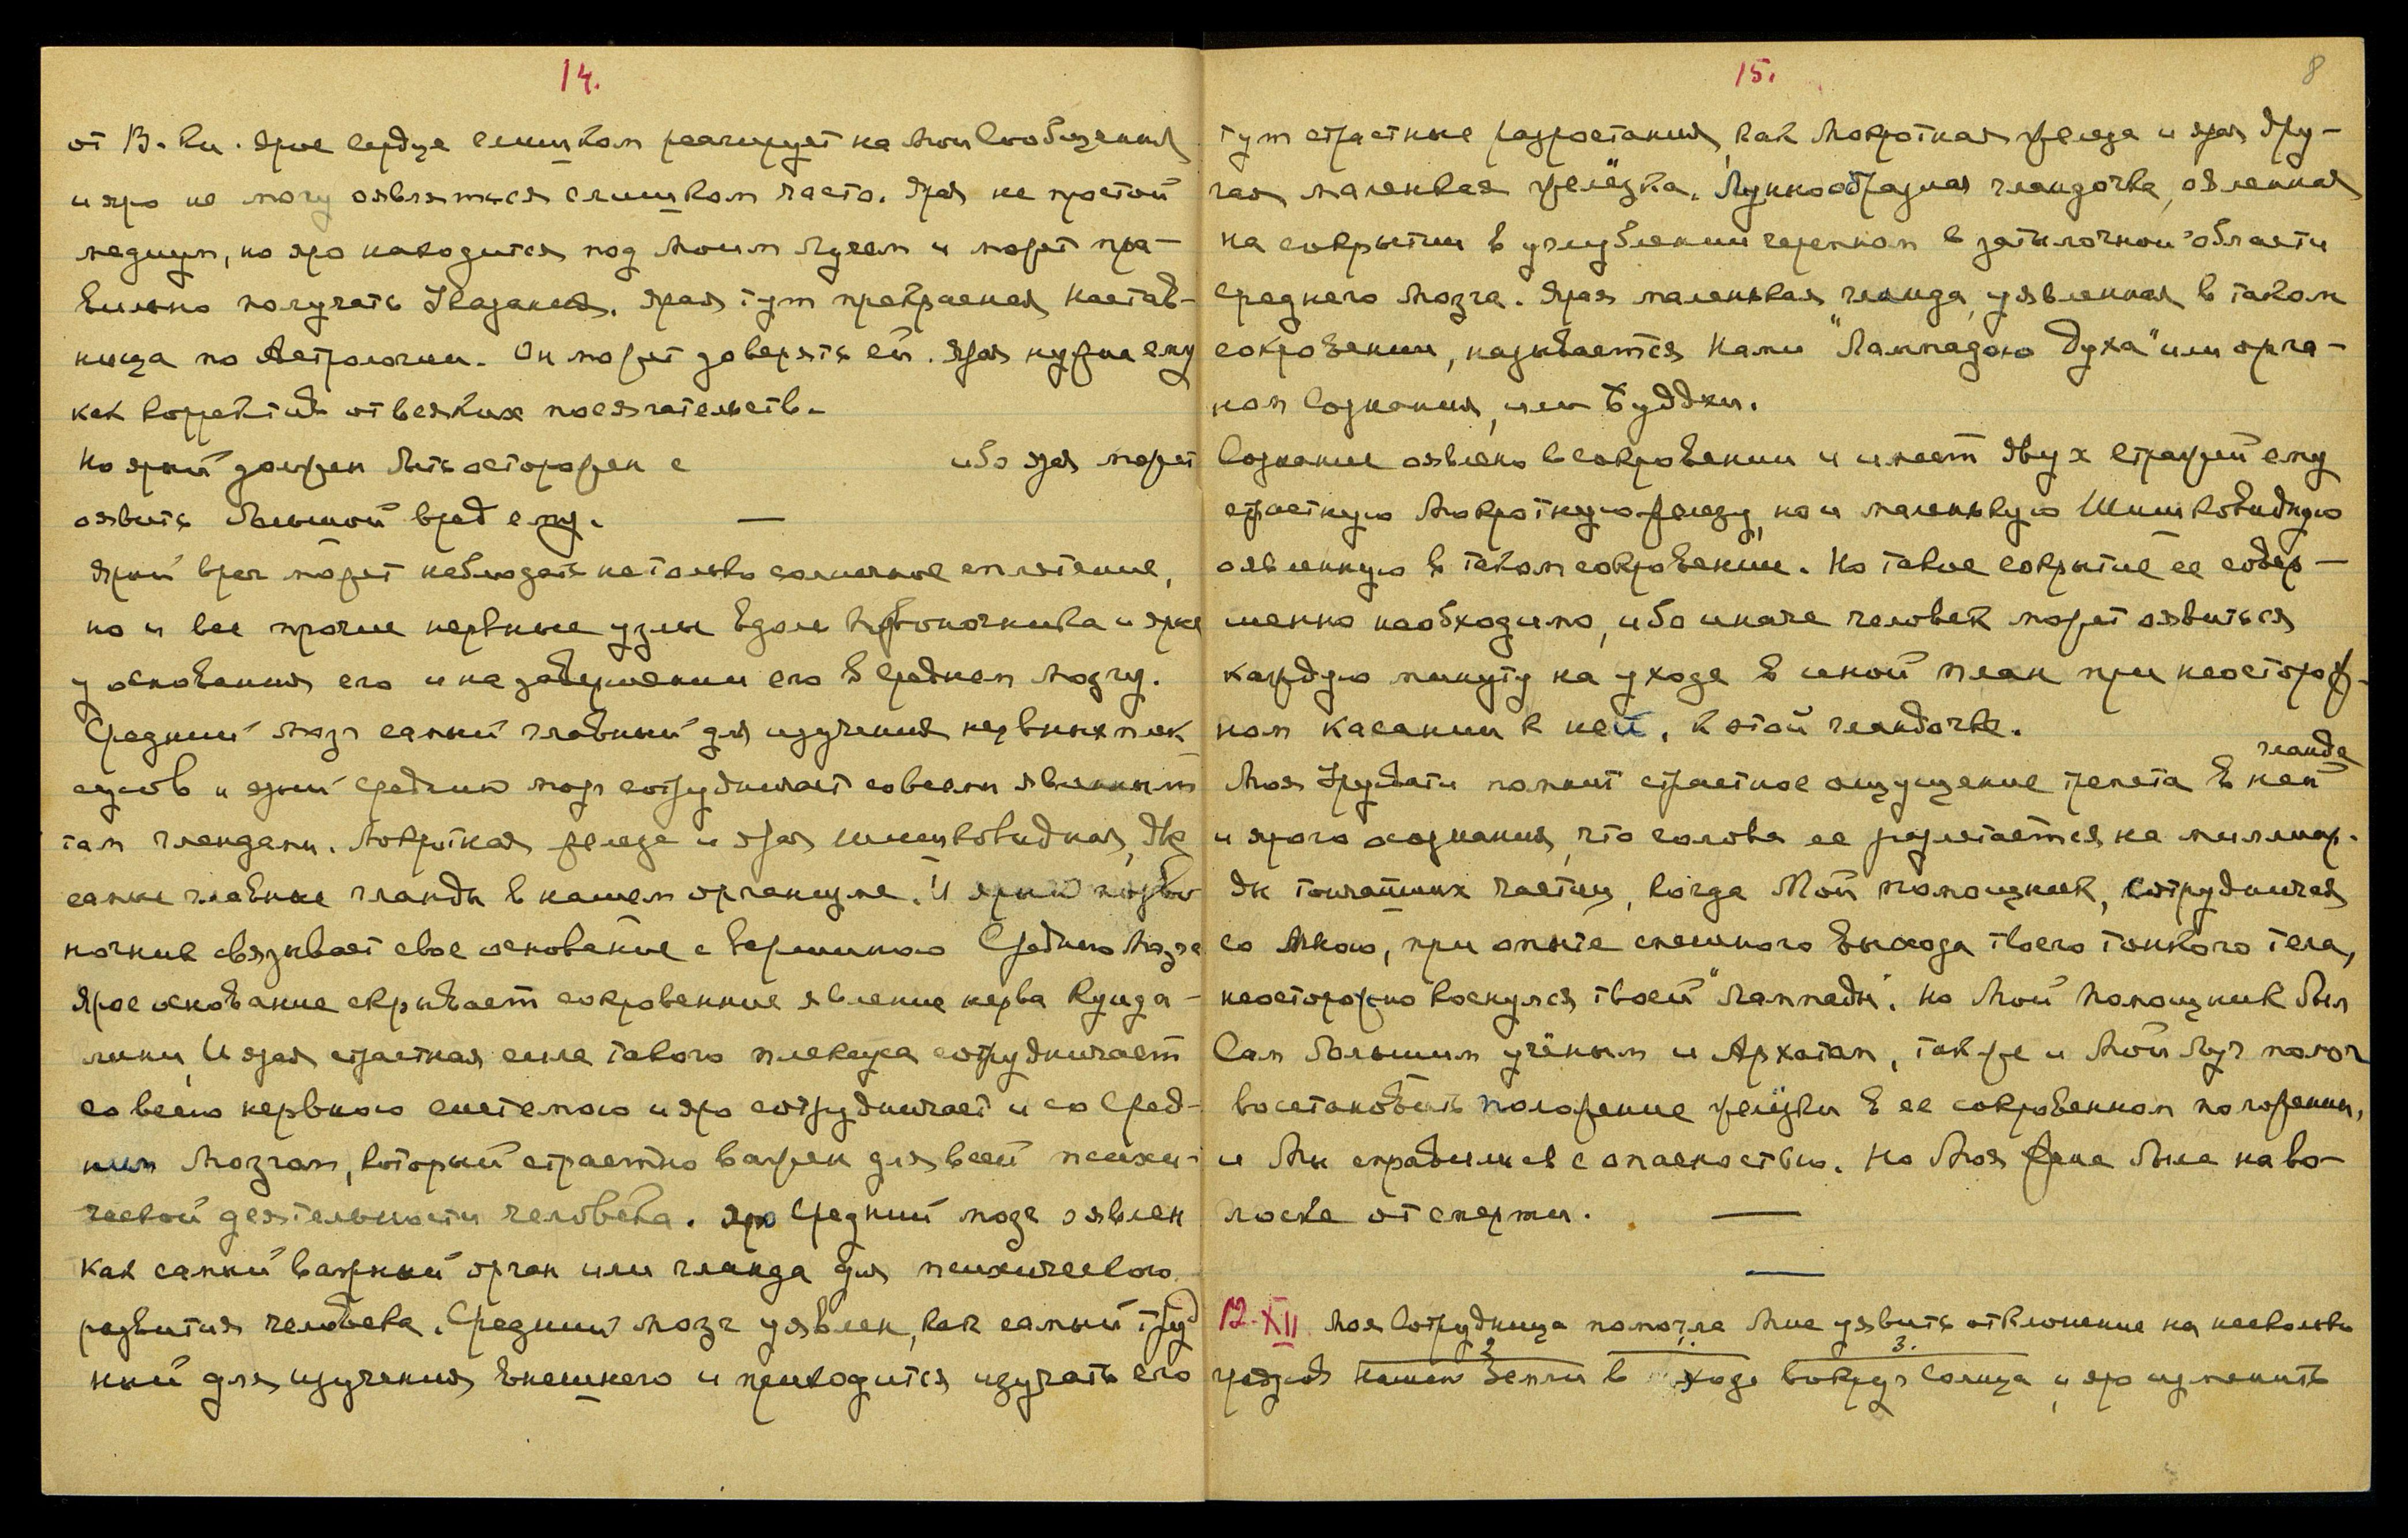 14.
от В. Ки. Ярое сердце слишком реагирует на Мои Сообщения
и яро не могу оявляться слишком часто. Ярая не простой
медиум, но яро находится под Моим Лучом и может пра-
вильно получать Указания. Ярая тут прекрасная настав-
ница по Астрологии. Он может доверять ей. Ярая нужна ему
как корректив от всяких посягательств.
Но ярый должен быть осторожен с ибо ярая может
оявить большой вред ему. —
Ярый врач может наблюдать не только солнечное сплетение,
но и все прочие нервные узлы вдоль позвоночника и ярые
у основания его и на завершении его в Среднем Мозгу.
Средний мозг самый главный для изучения нервных плек-
сусов и ярый Средний мозг сотрудничает со всеми явленными
там гландами. Мокротная железа и ярая шишковидная, две
самые главные гланды в нашем организме. И ярый позво
ночник связывает свое основание с вершиною Среднего Мозга
Ярое основание скрывает сокровенное явление нерва Кунда-
лини, И ярая страстная сила такого плексуса сотрудничает
со всею нервною системою и яро сотрудничает и со Сред-
ним Мозгом, который страстно важен для всей психи-
ческой деятельности человека. Яро Средний мозг оявлен
как самый важный орган или гланда для психического
развития человека. Средний мозг уявлен, как самый труд
ный для изучения внешнего и приходится изучать его
15.
8
тут страстные разростания, как Мокротная железа и ярая дру-
гая маленькая железка. Луннообразная гландочка, оявленная
на сокрытии в углублении черепном в затылочной области
Среднего Мозга. Ярая маленькая гланда, уявленная в таком
сокровении, называется Нами "Лампадою Духа" или орга-
ном Сознания, или Буддхи.
Сознание оявлено в сокровении и имеет двух стражей ему
страстную Мокротную железу, но и маленькую Шишковидную
оявленную в таком сокровении. Но такое сокрытие ее совер-
шенно необходимо, ибо иначе человек может оявиться
каждую минуту на уходе в иной план при неосторож-
ном касании к ней, к этой гландочке.
гланде
Моя Урувати помнит страстное ощущение трепета в ней
и ярого осознания, что голова ее разлетается на миллиар-
ды тончайших частиц, когда Мой помощник, сотрудничая
со Мною, при опыте спешного выхода твоего тонкого тела,
неосторожно коснулся твоей "Лампады". Но Мой Помощник был
Сам большим учёным и Архатом, также и Мой Луч помог
восстановить положение железки в ее сокровенном положении,
и Мы справились с опасностью. Но Моя Жена была на во-
лоске от смерти. —
—
12.XII Моя Сотрудница помогла Мне уявить отклонение на несколько
2 1. 3.
градусов нашей Земли в ходе вокруг Солнца, и яро изменить